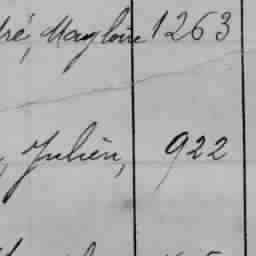 ré, Magloire 1263
, Julien, 922